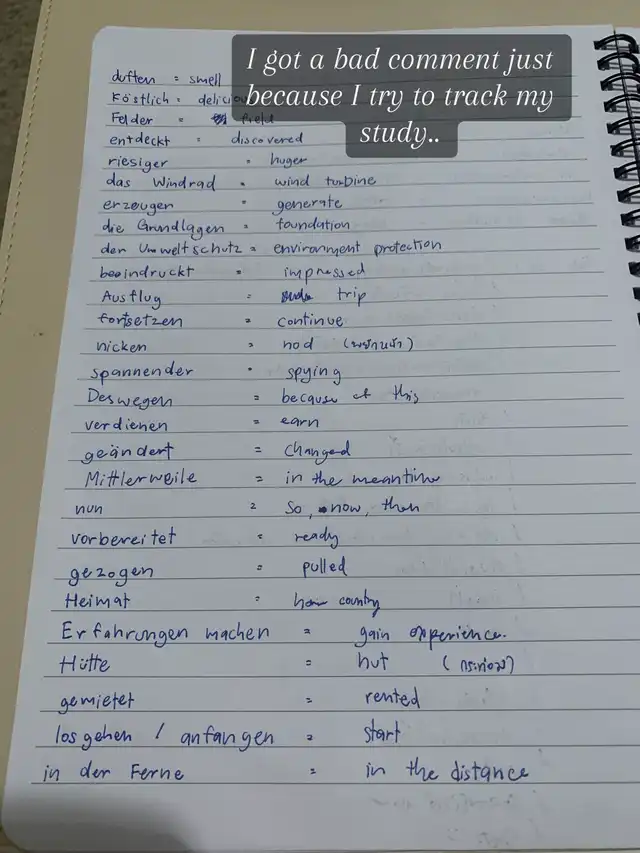 I got a bad comment just
because I try to track my
study..
duften = smell
Köstlich = delicio
Felder = field
entdeckt = discovered
riesiger = huger
das Windrad = wind turbine
erzeugen = generate
die Grundlagen = foundation
der Umweltschutz = environment protection
beeindruckt = impressed
Ausflug = trip
fortsetzen = continue
nicken = nod (พยักหน้า)
spannender = spying
Deswegen = because of this
verdienen = earn
geändert = changed
Mittlerweile = in the meantime
nun = So, now, then
vorbereitet = ready
gezogen = pulled
Heimat = home country
Erfahrungen machen = gain experience.
Hütte = hut (กระท่อม)
gemietet = rented
losgehen / anfangen = start
in der Ferne = in the distance